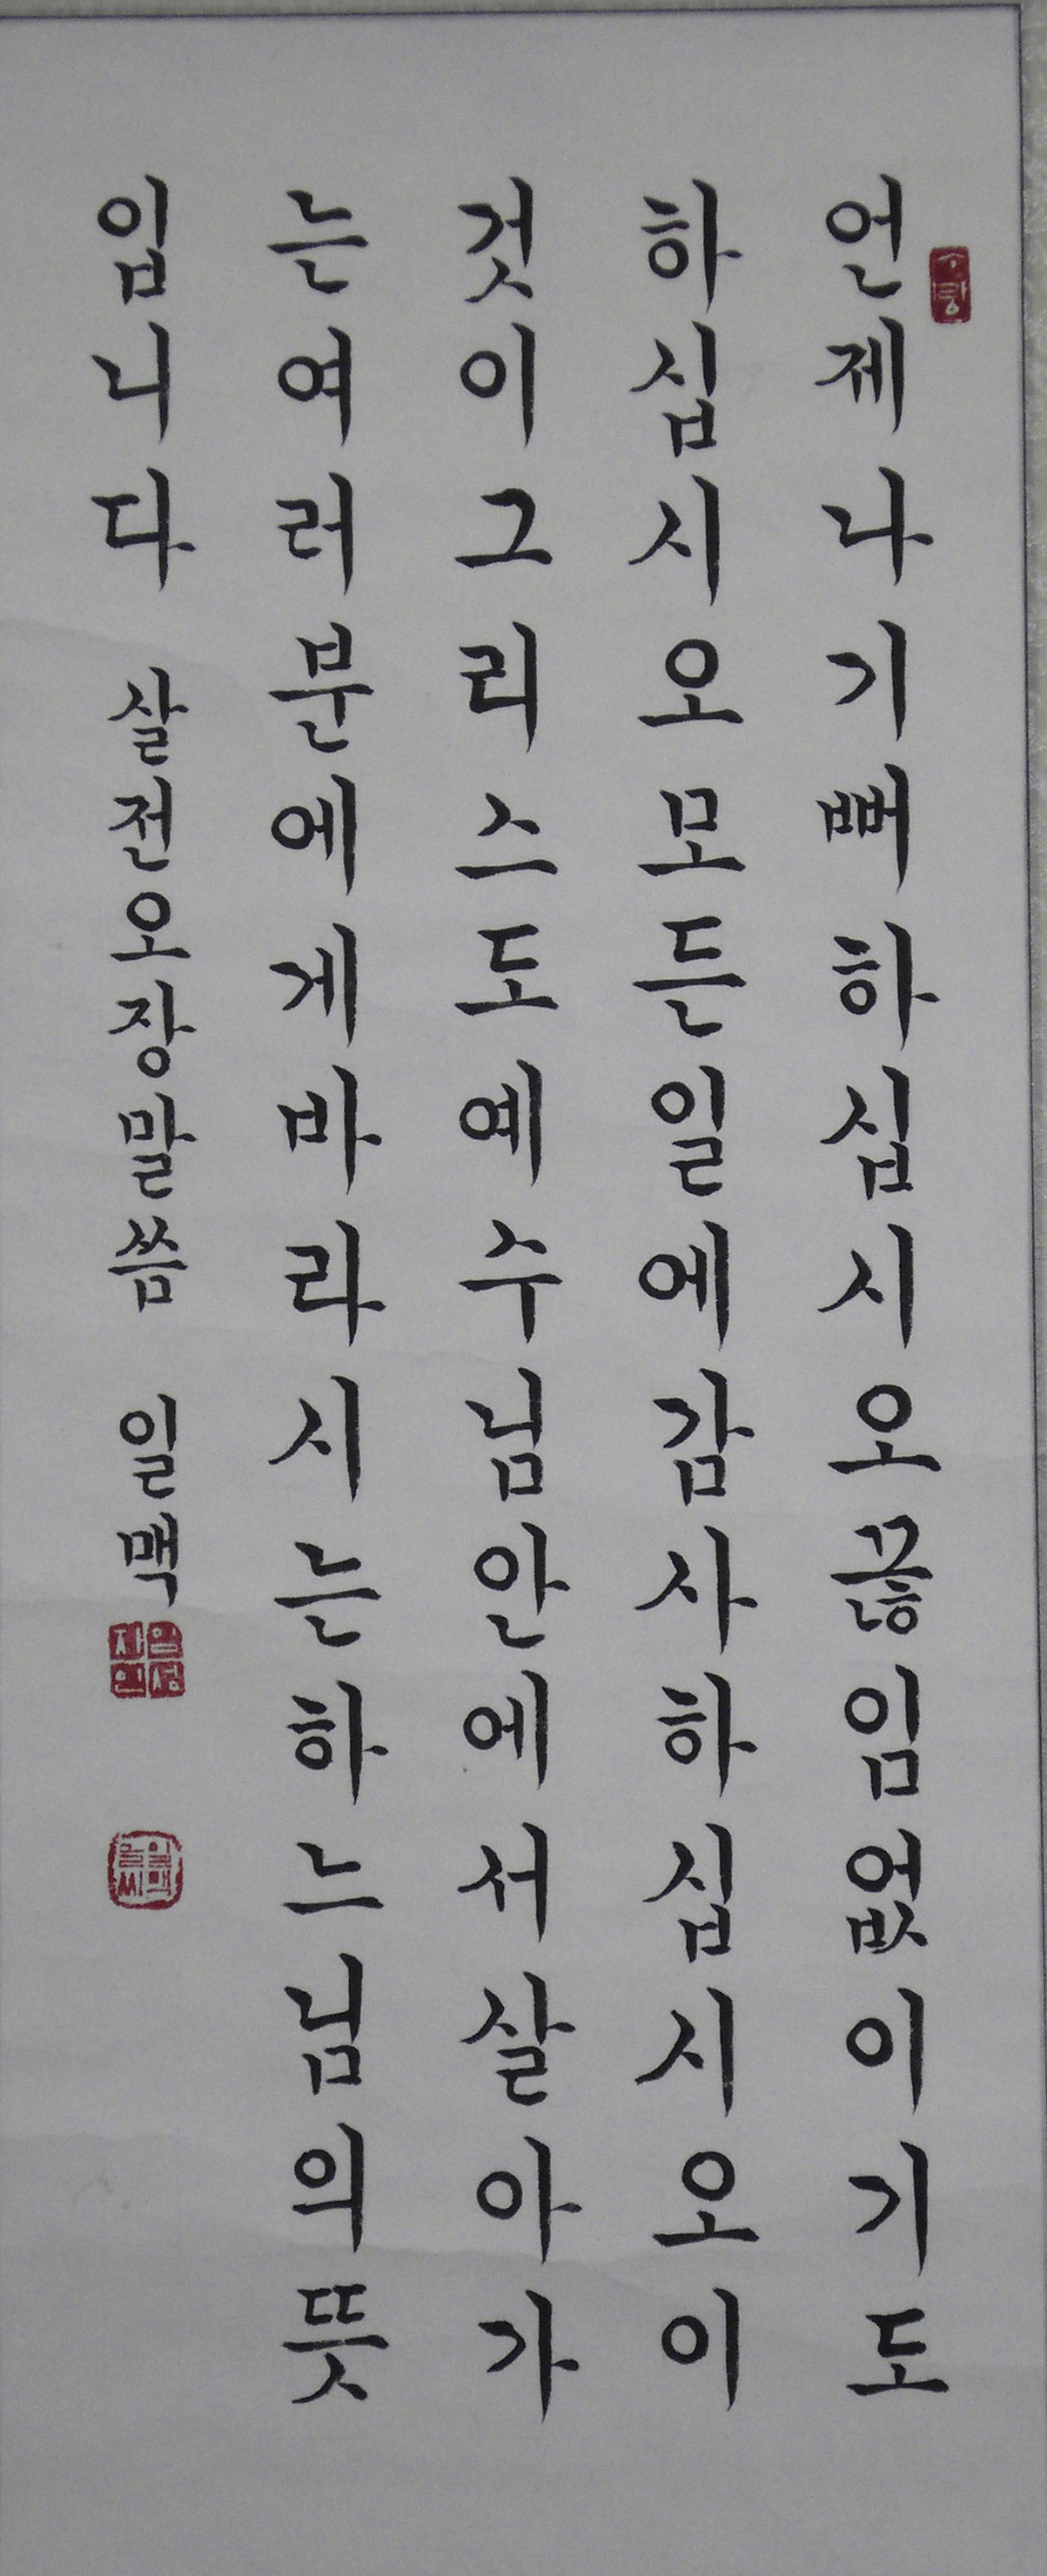 언제나기뻐하십시오끊임없이기도
하십시오모든일에감사하십시오이
것이그리스도예수님안에서살아가
는여러분에게바라시는하느님의뜻
입니다 살전오장말씀 일맥